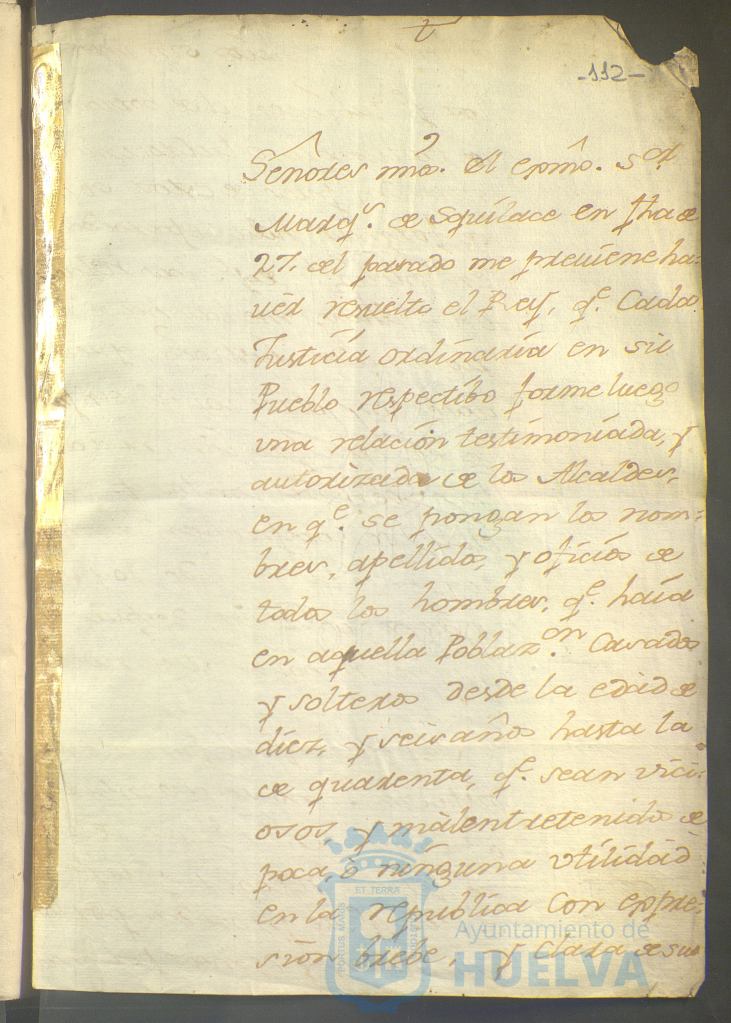 -112-
Señores mios. El exmo. Sor
Marqs. de Squilace en fha de
27. del pasado me previene ha-
ver resuelto el Rey, qe. Cada
Justicia ordinaria en su
Pueblo respectibo forme luego
vna relación testimoniada, y
autorizada de los Alcaldes,
en qe. se pongan los nom-
bres, apellidos, y oficios de
todos los hombres, qe. haia
en aquella Poblazon. Casados
y solteros desde la edad de
diez, y seis años hasta la
de quarenta, qe. sean vici-
osos y malentretenidos de
poca ò ninguna vtilidad
en la republica con expre-
sion brebe, y clara de sus
ET TERRA
PORTUS MARIS
CUSTODIA
Ayuntamiento de
HUELVA